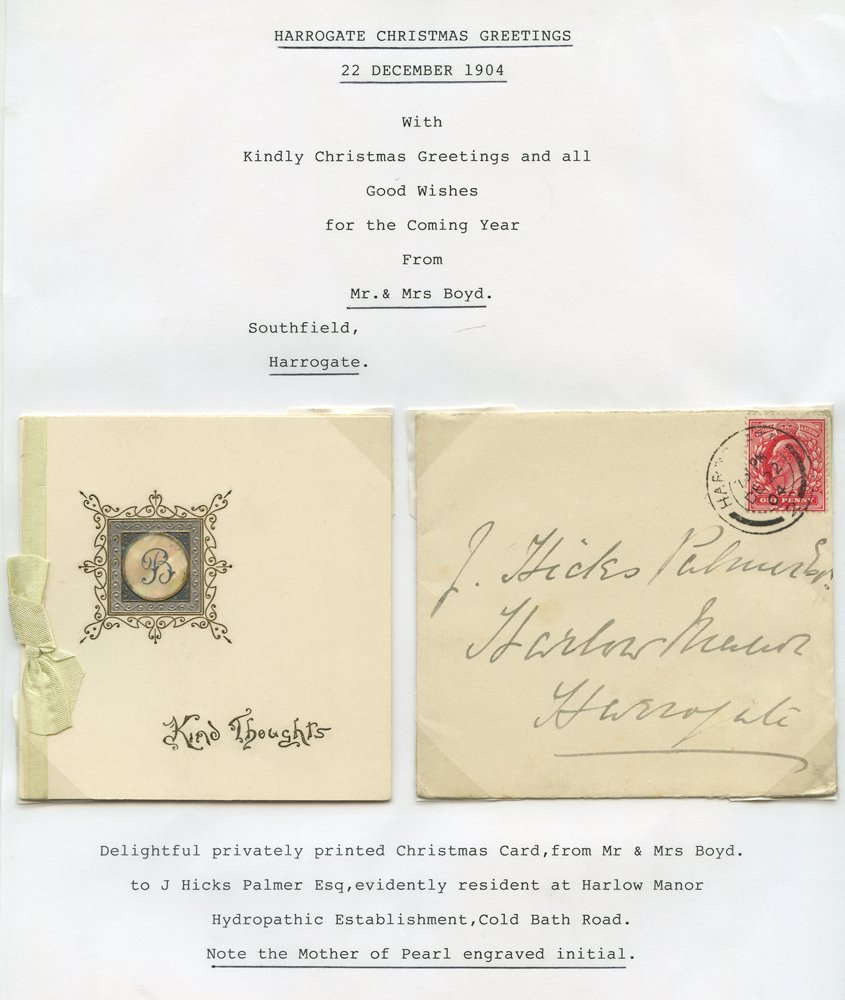 HARROGATE CHRISTMAS GREETINGS
22 DECEMBER 1904
With
Kindly Christmas Greetings and all
Good Wishes
for the Coming Year
From
Mr.& Mrs Boyd.
Southfield,
Harrogate.
B
Kind Thoughts
DE 22
04
ONE PENNY
J. Hicks Palmer Esq.
Harlow Manor
Harrogate
Delightful privately printed Christmas Card,from Mr & Mrs Boyd.
to J Hicks Palmer Esq,evidently resident at Harlow Manor
Hydropathic Establishment,Cold Bath Road.
Note the Mother of Pearl engraved initial.